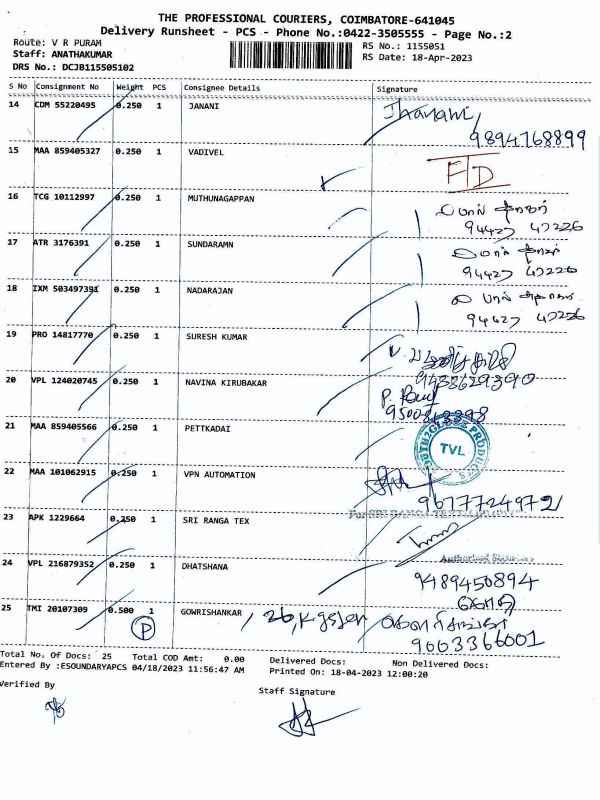 THE PROFESSIONAL COURIERS, COIMBATORE-641045
Delivery Runsheet - PCS - Phone No.:0422-3505555 - Page No.:2
Route: V R PURAM
RS No.: 1155051
Staff: ANATHAKUMAR
RS Date: 18-Apr-2023
DRS No.: DCJB115505102
S No Consignment No Weight PCS Consignee Details Signature
14 CDM 55220495 0.250 1 JANANI
9894768899
15 MAA 859405327 0.250 1 VADIVEL
16 TCG 10112997 0.250 1 MUTHUNAGAPPAN
94427 47226
17 ATR 3176391 0.250 1 SUNDARAMN
94427 47226
18 IXM 503497391 0.250 1 NADARAJAN
94427 47226
19 PRO 14817770 0.250 1 SURESH KUMAR
20 VPL 124020745 0.250 1 NAVINA KIRUBAKAR
21 MAA 859405566 0.250 1 PETTKADAI
TVL
22 MAA 101062915 0.250 1 VPN AUTOMATION
9677724972
23 APK 1229664 0.250 1 SRI RANGA TEX
24 VPL 216879352 0.250 1 DHATSHANA
9489450894
25 TMI 20107309 0.500 1 GOWRISHANKAR
P
9663366001
Total No. Of Docs: 25 Total COD Amt: 0.00 Delivered Docs: Non Delivered Docs:
Entered By :ESOUNDARYAPCS 04/18/2023 11:56:47 AM Printed On: 18-04-2023 12:00:20
Verified By
Staff Signature